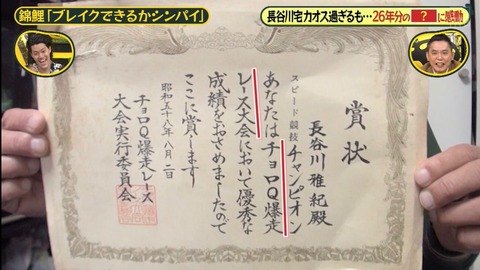 錦鯉「ブレイクできるかシンパイ」
長谷川宅カオス過ぎるも…26年分の ? に感動
賞状
長谷川雅紀殿
スピード競技チャンピオン
あなたはチョロQ爆走
レース大会において優秀な
成績をおさめましたので
ここに賞します
昭和五十八年八月二日
チョロQ爆走レース
大会実行委員会